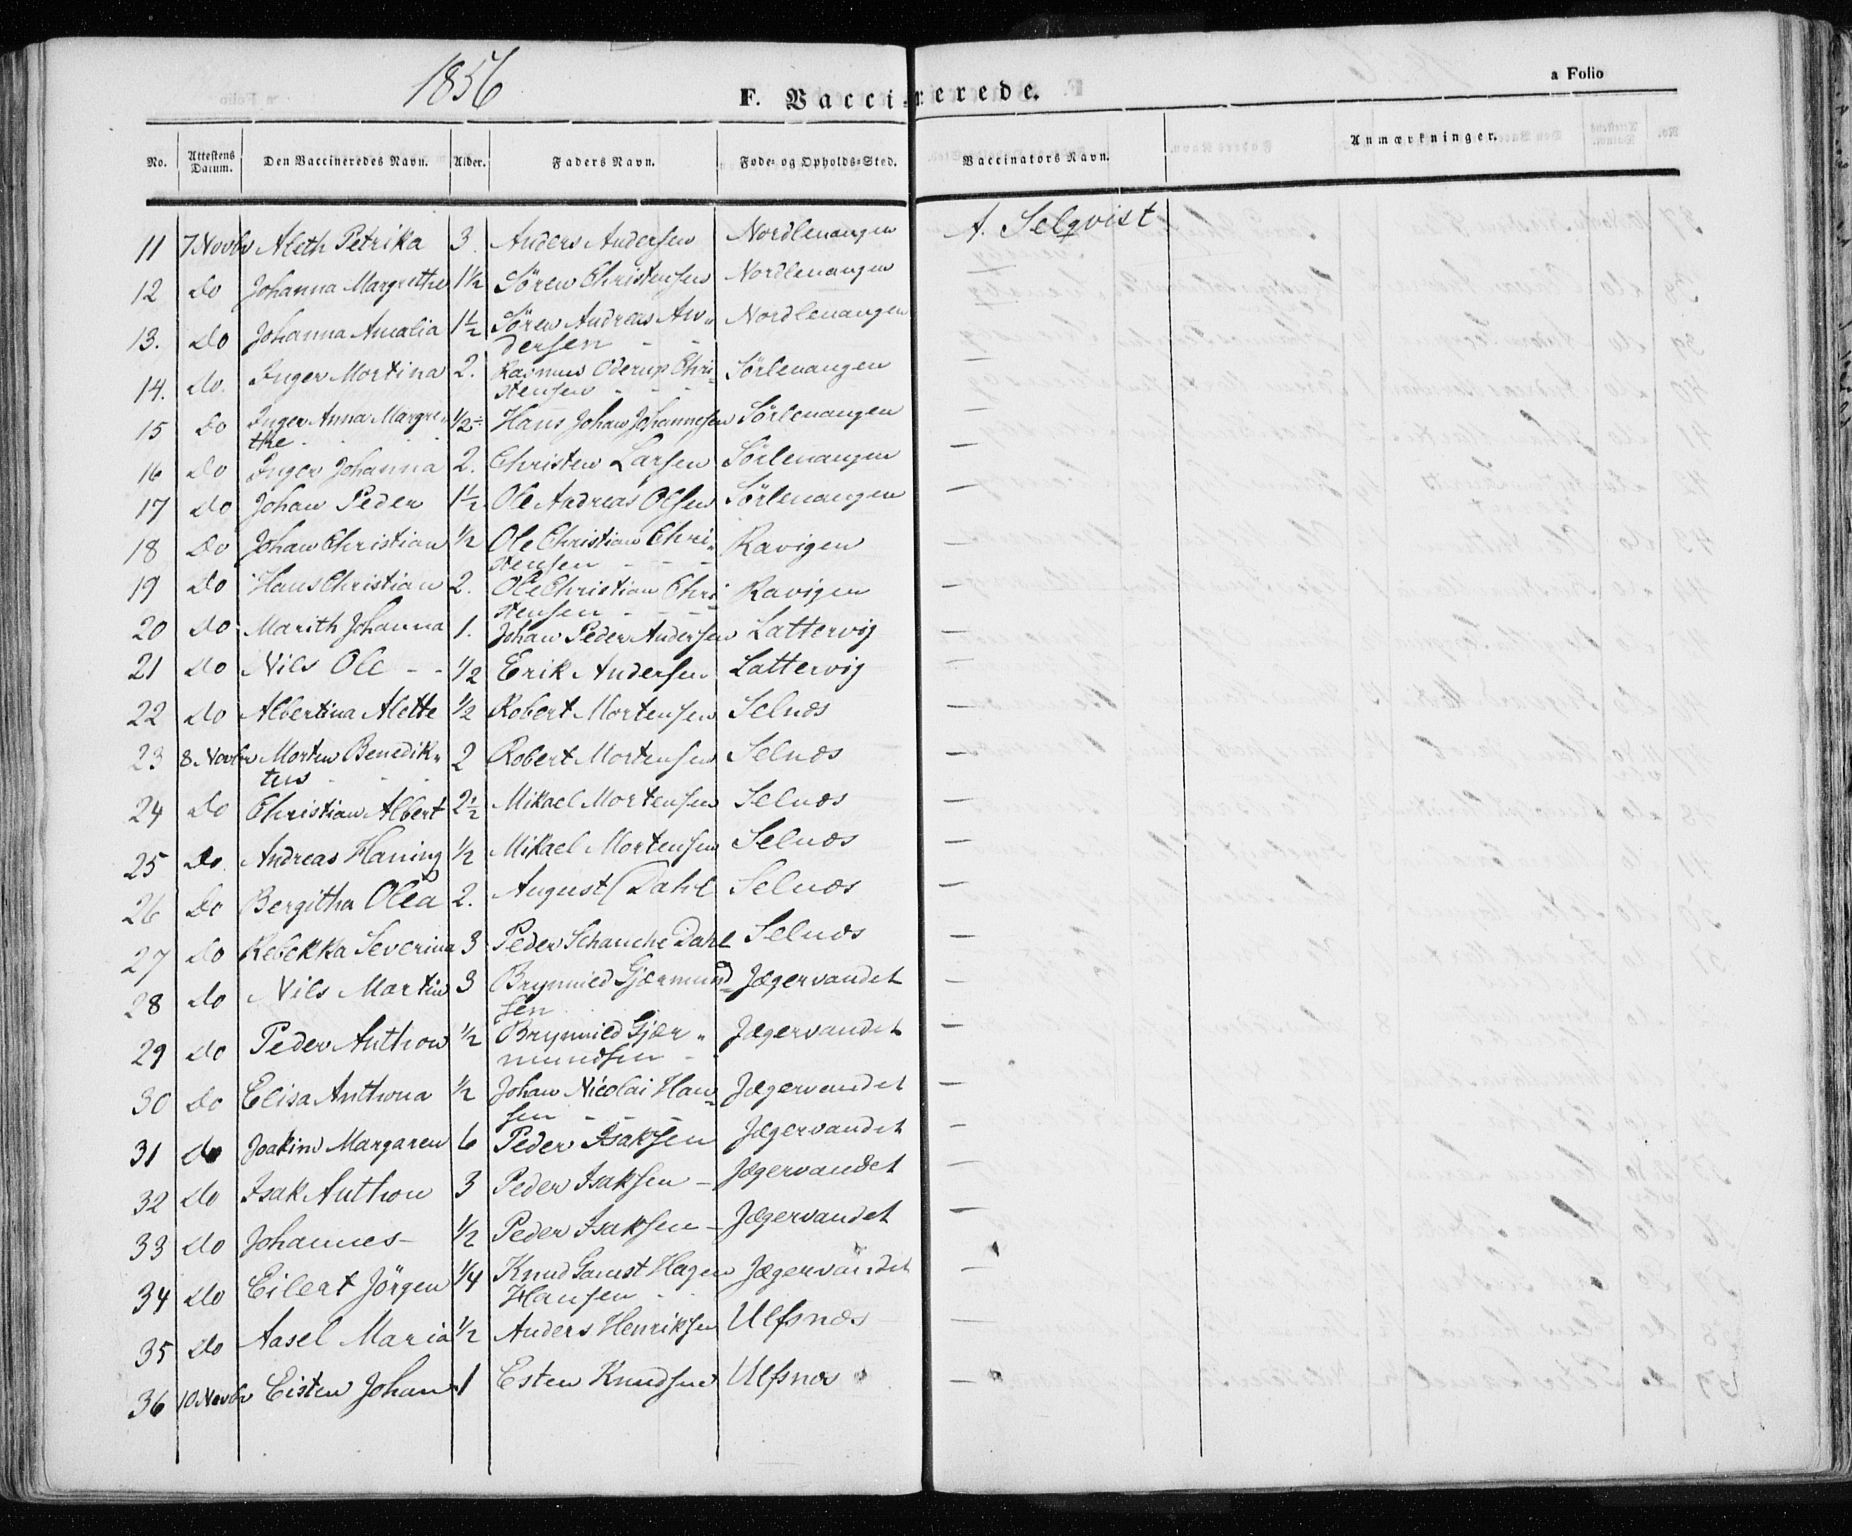 1856
a Folio
F. Vaccinerede.
No. Attestens Datum. Den Vaccineredes Navn. Alder. Faders Navn. Føde- og Opholds-Sted. Vaccinators Navn. Anmærkninger.
11 7 Novbr Aleth Petrika 3. Anders Andersen Nordlenangen A. Selqvist
12 do Johanna Margrethe 1½ Sören Christensen Nordlenangen —
13. do Johanna Amalia 1½ Sören Andreas An„ Nordlenangen —
dersen - -
14. do. Inger Mortina 2. Rasmus Oderup Chri- Sörlenangen —
stensen - - -
15 do Inger Anna Margre„ ½ Hans Johan Johannesen Sörlenangen —
the - - -
16 do Inger Johanna 2. Christen Larsen Sörlenangen —
17 do Johan Peder 1½ Ole Andreas Olsen Sörlenangen —
18 do Johan Christian ½ Ole Christian Chri„ Ravigen —
stensen - - -
19 do Hans Christian 2. Ole Christian Chri Ravigen —
stensen - - -
20 do Marith Johanna 1. Johan Peder Andersen Lattervig —
21 do Nils Ole - - ½ Erik Andersen Lattervig —
22 do Albertina Alette ½ Robert Mortensen Selnæs —
23 8 Novbr Morten Benedik„ 2 Robert Mortensen Selnæs —
tus - - -
24 do Christian Albert 2½ Mikael Mortensen Selnæs —
25 do Andreas Haning ½ Mikael Mortensen Selnæs —
26 do Bergitha Olea 2. August Dahl Selnæs —
27 do Rebekka Severina 3 Peder Schanche Dahl Selnæs —
28 do Nils Martin 3 Brynnild Gjærmund- Jægervandet —
sen
29 do Peder Anthon ½ Brynnild Gjær„ Jægervandet —
mundsen -
30 do Elisa Anthona ½ Johan Nicolai Han- Jægervandet —
sen - - -
31 do Joakim Margaren 6 Peder Isaksen Jægervandet —
32 do Isak Anthon 3 Peder Isaksen - Jægervandet —
33 do Johannes - ½ Peder Isaksen - Jægervandet —
34 do Eilert Jörgen ¼ Knud Hagen Jægervandet —
Hansen - -
35 do Aasel Maria ½ Anders Henriksen Ulfsnæs —
36 10 Novbr Eisten Johan 1 Esten Knudsen Ulfsnæs —